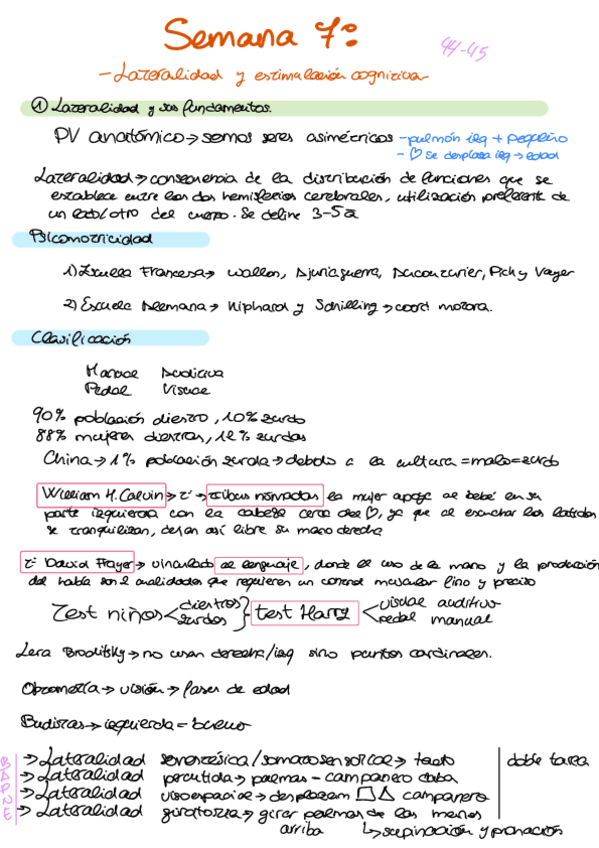 Semana 7:
44-45
- Lateralidad y estimulación cognitiva
① Lateralidad y sus fundamentos.
PV anatómico → somos seres asimétricos - pulmón izq + pequeño
- ♡ se desplaza izq → edad
Lateralidad → consecuencia de la distribución de funciones que se
establece entre los dos hemisferios cerebrales, utilización preferente de
un lado/otro del cuerpo. Se define 3-5a
Psicomotricidad
1) Escuela Francesa → Wallon, Ajuriaguerra, Picky Vayer
2) Escuela Alemana → Kiphard y Schilling → coord motora.
Clasificación
Manual Auditiva
Pedal Visual
90% población diestro, 10% zurdo
88% mujeres diestras, 12% zurdas
China → 1% población zurda → debido a la cultura = malo = zurdo
William H. Calvin → tª → tribus nómadas la mujer apoya al bebé en su
parte izquierda con la cabeza cerca del ♡, ya que al escuchar los latidos
se tranquilizan, dejan así libre su mano derecha
tª David Frayer → vinculado al lenguaje, donde el uso de la mano y la producción
del habla son 2 cualidades que requieren un control muscular fino y preciso
Test niños < diestros zurdos } test Harry < visual auditivo pedal manual
Lera Broditsky → no usan derecha/izq sino puntos cardinales.
Optometría → visión → fases de edad
Budistas → izquierda = bueno
→ Lateralidad senestésica/somatosensorial → tacto
doble tarea
→ Lateralidad percutida → palmas - campanero
→ Lateralidad visoespacial → desplazam □△ campanero
→ Lateralidad giratoria → girar palmas de las manos
arriba ↳ supinación y pronación